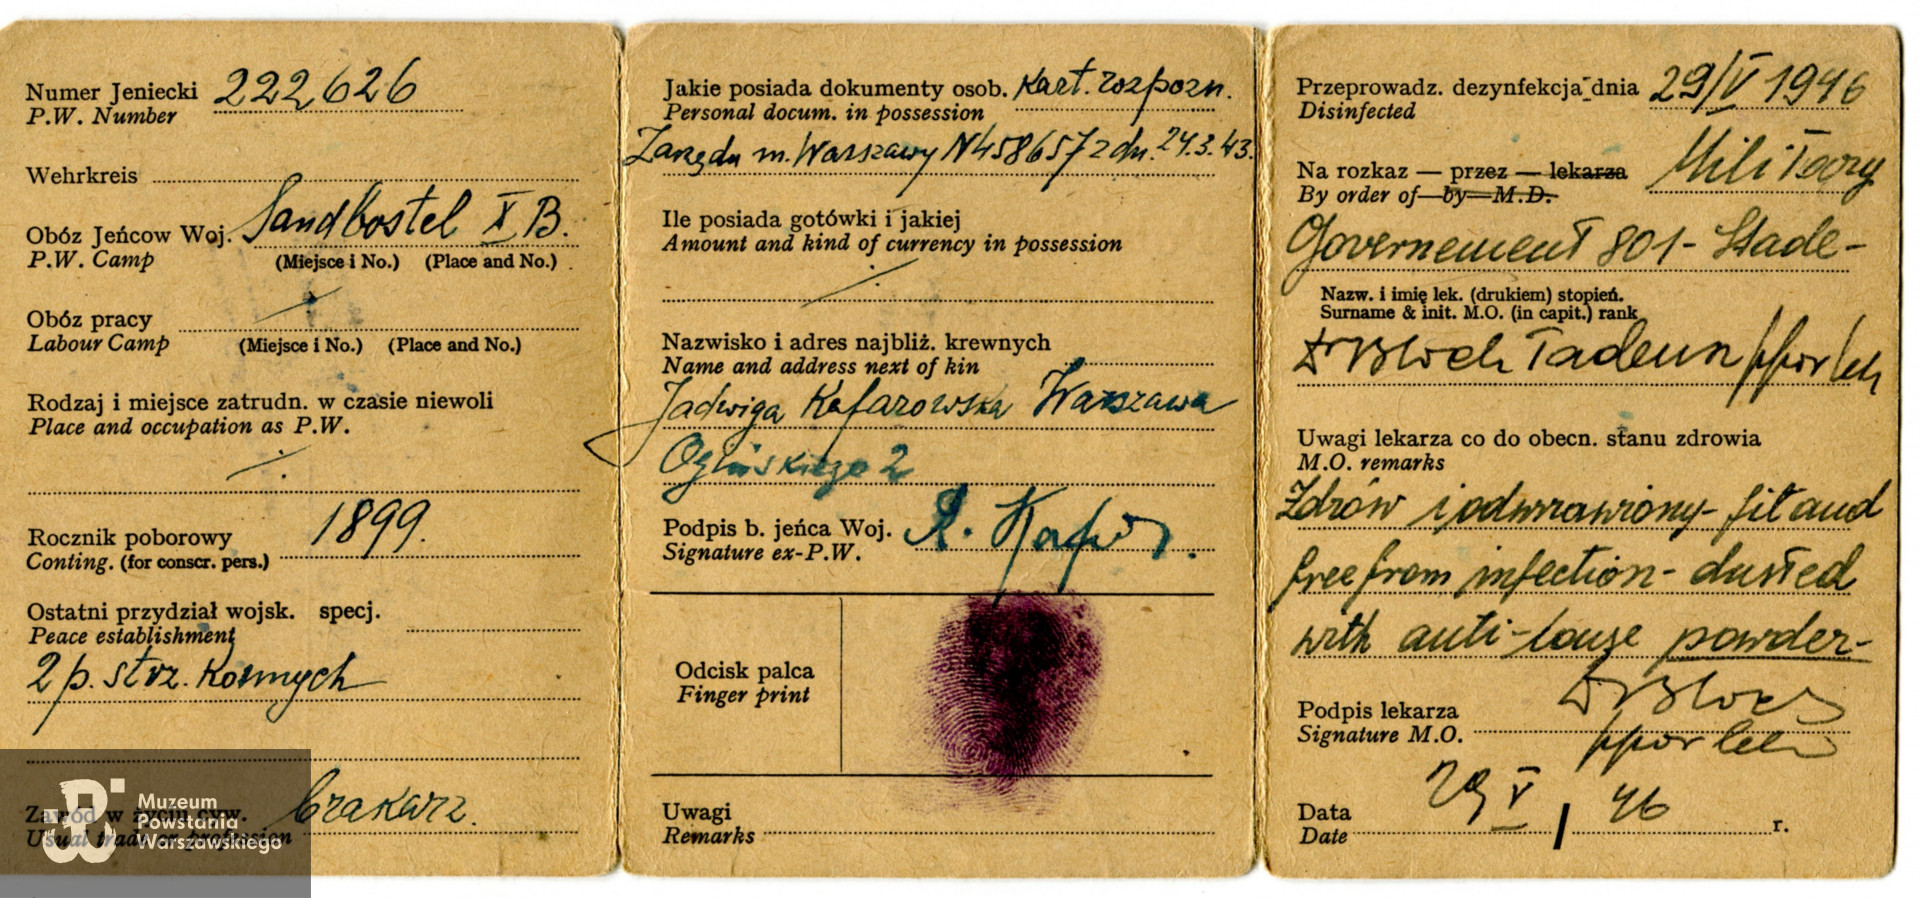 Numer Jeniecki 222626
P.W. Number
Wehrkreis
Obóz Jeńcow Woj. Sandbostel X B.
P.W. Camp (Miejsce i No.) (Place and No.)
Obóz pracy
Labour Camp (Miejsce i No.) (Place and No.)
Rodzaj i miejsce zatrudn. w czasie niewoli
Place and occupation as P.W.
Rocznik poborowy 1899.
Conting. (for conscr. pers.)
Ostatni przydział wojsk. specj.
Peace establishment
2 p. strz. Konnych
Zawód w życiu cyw.
Usual trade or profession
Muzeum
Powstania
Warszawskiego
Jakie posiada dokumenty osob. Kart. rozpozn.
Personal docum. in possession
Zarządu m. Warszawy N458657 z dn. 24.3.43.
Ile posiada gotówki i jakiej
Amount and kind of currency in possession
Nazwisko i adres najbliż. krewnych
Name and address next of kin
Jadwiga Kafarowska Warszawa
Ogińskiego 2
Podpis b. jeńca Woj.
Signature ex-P.W.
Odcisk palca
Finger print
Uwagi
Remarks
Przeprowadz. dezynfekcja dnia 29/V 1946
Disinfected
Na rozkaz — przez — lekarza Military
By order of—by—M.D.
Governement 801 - Stade -
Nazw. i imię lek. (drukiem) stopień.
Surname & init. M.O. (in capit.) rank
Dr Bloch Tadeusz ppor lek
Uwagi lekarza co do obecn. stanu zdrowia
M.O. remarks
Zdrów i odwszawiony - fit and
free from infection - dusted
with anti-louse powder -
Podpis lekarza Dr Bloch
Signature M.O. ppor lek
Data 29 V / 46 r.
Date